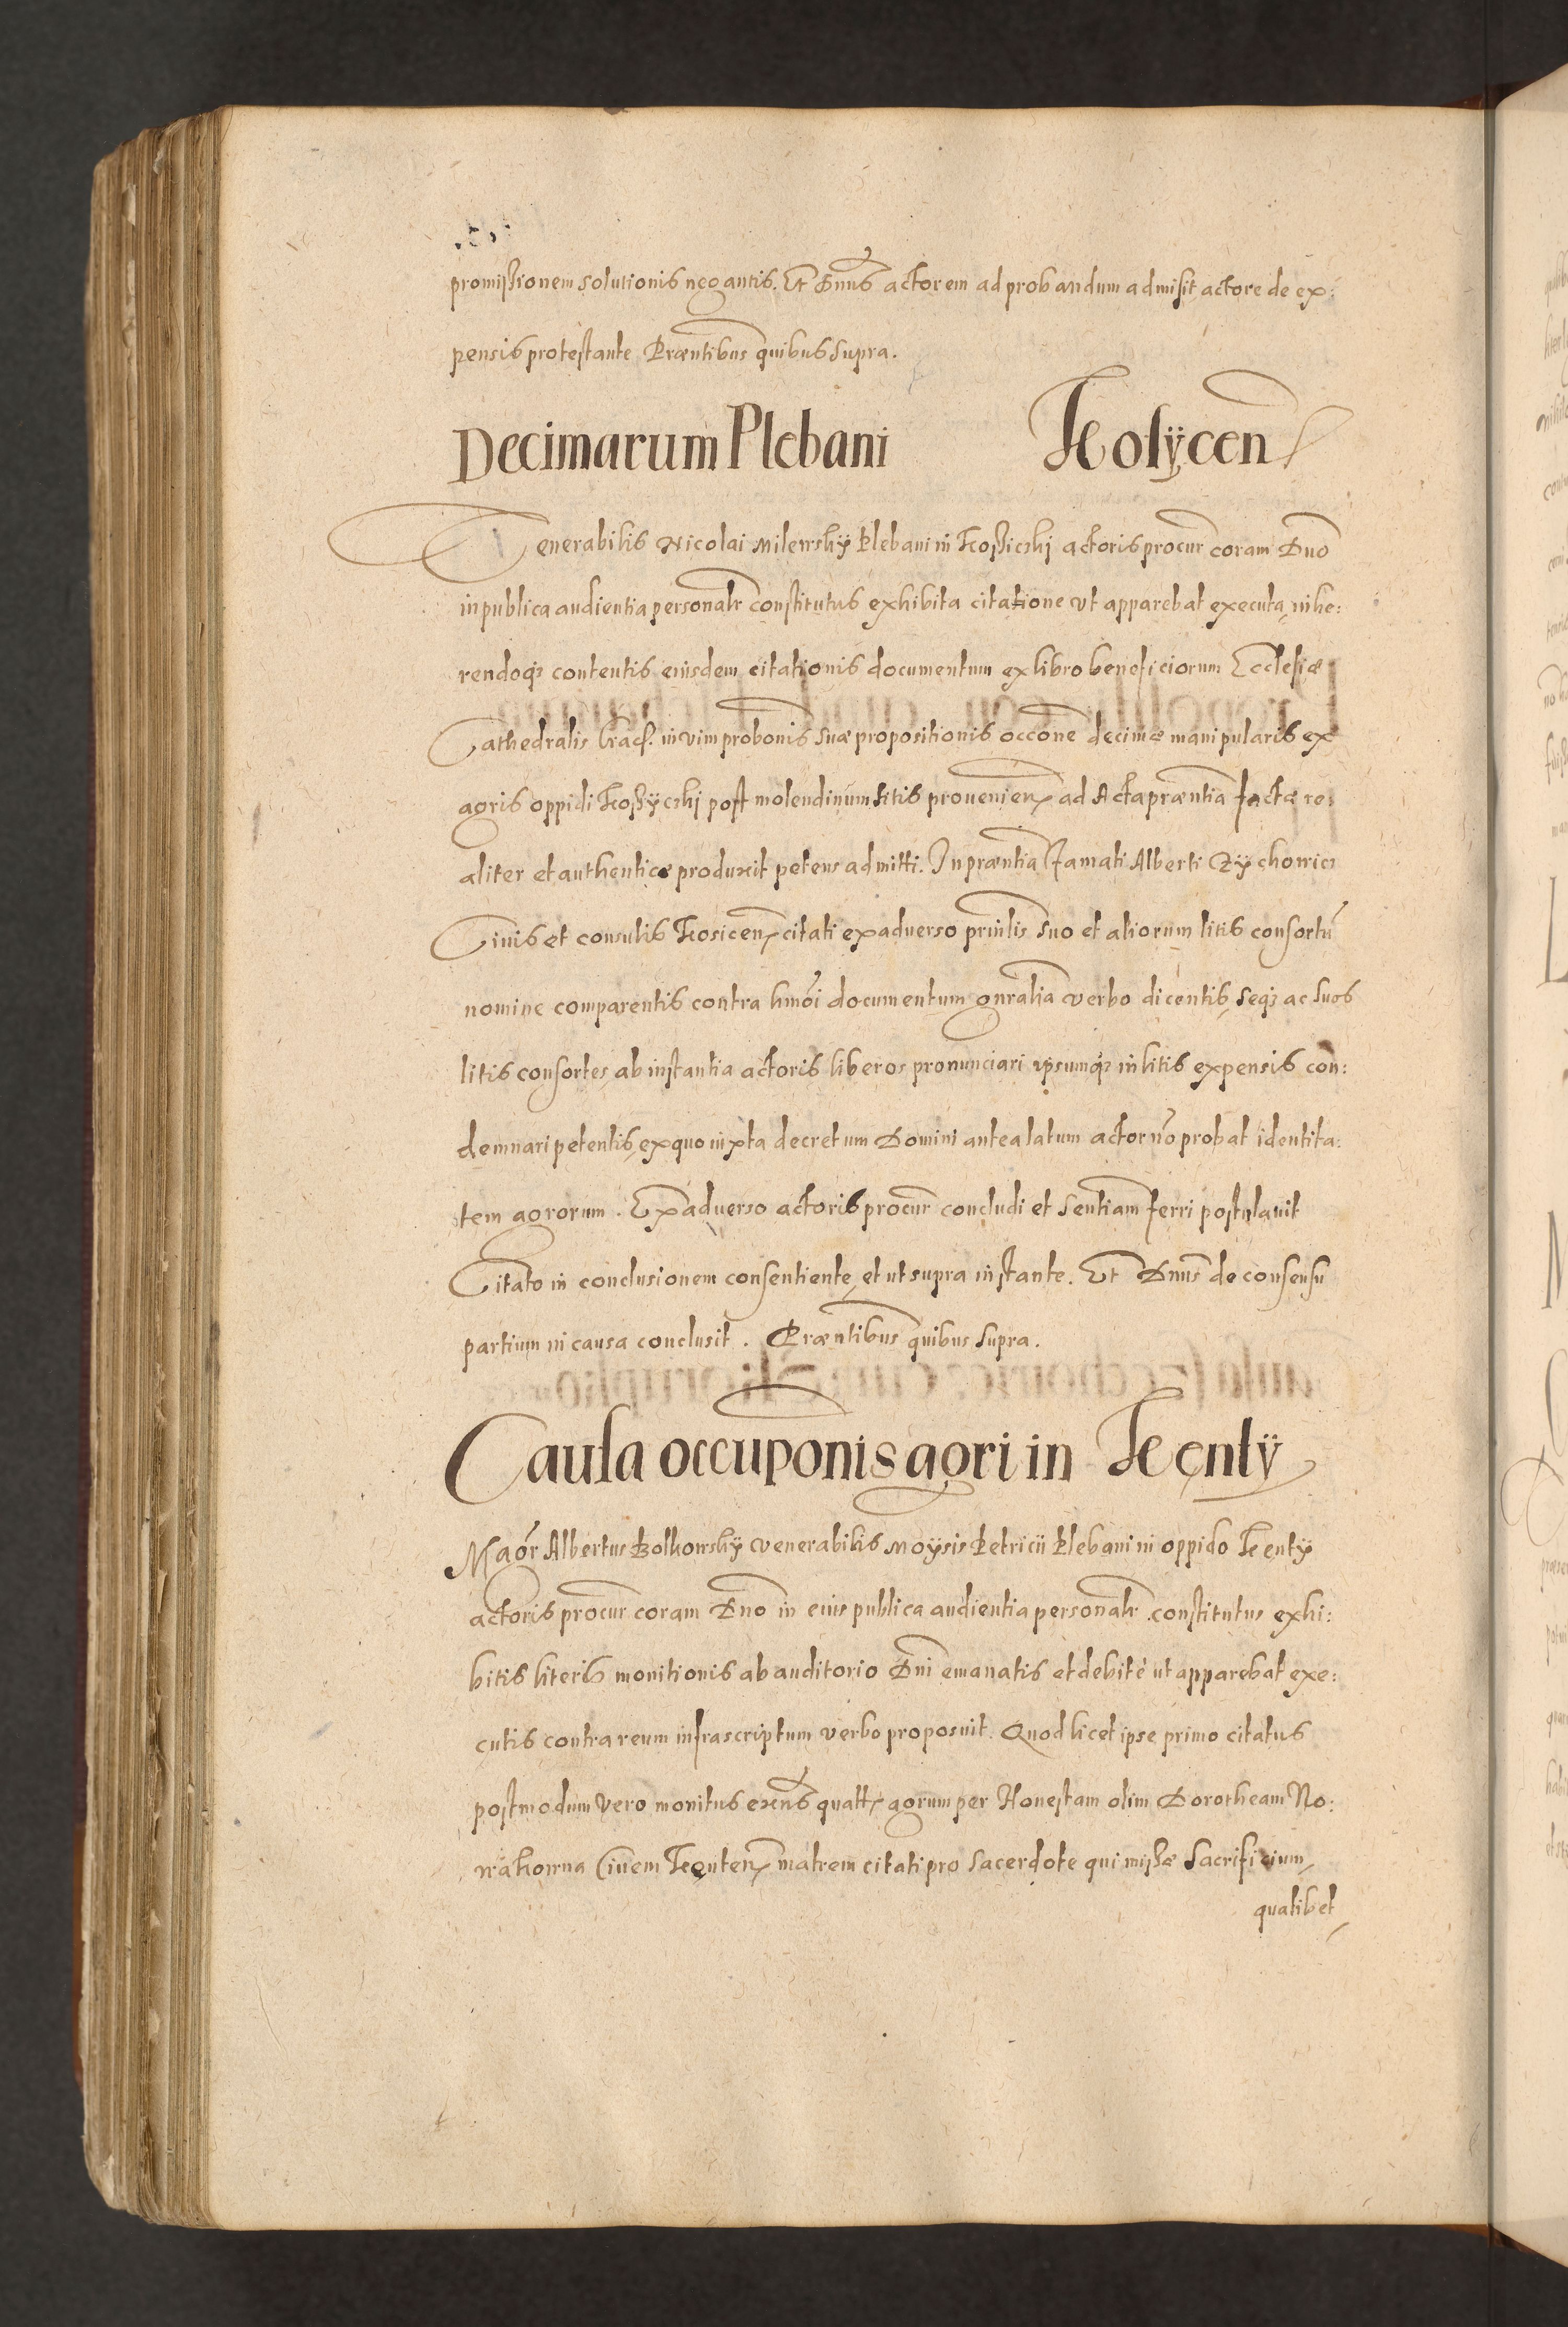 promissionem solutionis negantis. Et Dnus actorem ad probandum admisit, actore de ex:
pensis protestante Præntibus quibus supra.
Decimarum Plebani Kosÿcen
Venerabilis Nicolai Milewskÿ Plebani in Kossiczkj actoris procur coram Dno
in publica audientia personalr constitutus exhibita citatione vt apparebat executa, inhe:
rendoq; contentis eiusdem citationis documentum ex libro beneficiorum Ecclesiæ
Cathedralis Crac. in vim probonis suæ propositionis occone decimæ manipularis ex
agris oppidi Kossÿczkj post molendinum sitis provenien ad Acta præntia factæ re:
aliter et authenticæ produxit petens admitti. In præntia Famati Alberti Zÿchowicz
Civis et consulis Kosicen citati ex adverso prinlis suo et aliorum litis consortu
nomine comparentis contra hmoi documentum gnralia verbo dicentis, seq; ac suos
litis consortes, ab instantia actoris liberos pronunciari ipsumq; in litis expensis con:
demnari petentis, ex quo iuxta decretum Domini antea latum actor no probat identita:
tem agrorum. Ex adverso actoris procur concludi et sentiam ferri postulavit
Citato in conclusionem consentiente, et ut supra instante. Et Dnus de consensu
partium in causa conclusit. Præntibus quibus supra.
Causa occuponis agri in Kęntÿ
Magr Albertus Bolkowskÿ venerabilis Moÿsis Petricii Plebani in oppido Kęntÿ
actoris procur coram Dno in eius publica audientia personalr constitutus exhi:
bitis literis monitionis ab auditorio Dni emanatis et debitè ut apparebat exe:
cutis contra reum infrascriptum verbo proposuit. Quod licet ipse primo citatus
postmodum vero monitus exns agrum per Honestam olim Dorotheam No:
wakowna Civem Kęnten matrem citati pro sacerdote qui missæ sacrificium
qualibet